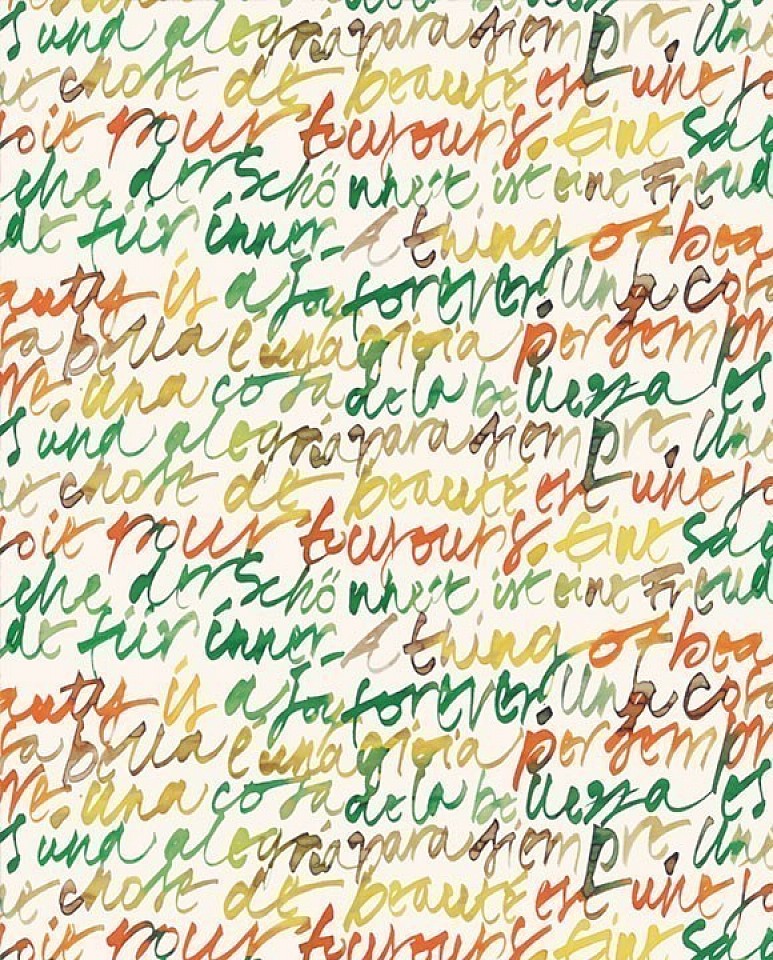 s una alegría para siempre. Un
e chose de beauté est une jo
oie pour toujours. Eine Sac
che der Schönheit ist eine Freud
de für immer. A thing of bea
auty is a jo forever. Una cosa
sa bella è una gioia per sempr
re. una cosa de la belleza es
s una alegría para siempre. Un
e chose de beauté est une jo
oie pour toujours. Eine Sac
che der Schönheit ist eine Freud
de für immer. A thing of bea
auty is a jo forever. Una cosa
sa bella è una gioia per sempr
re. una cosa de la belleza es
s una alegría para siempre. Un
e chose de beauté est une jo
oie pour toujours. Eine Sac